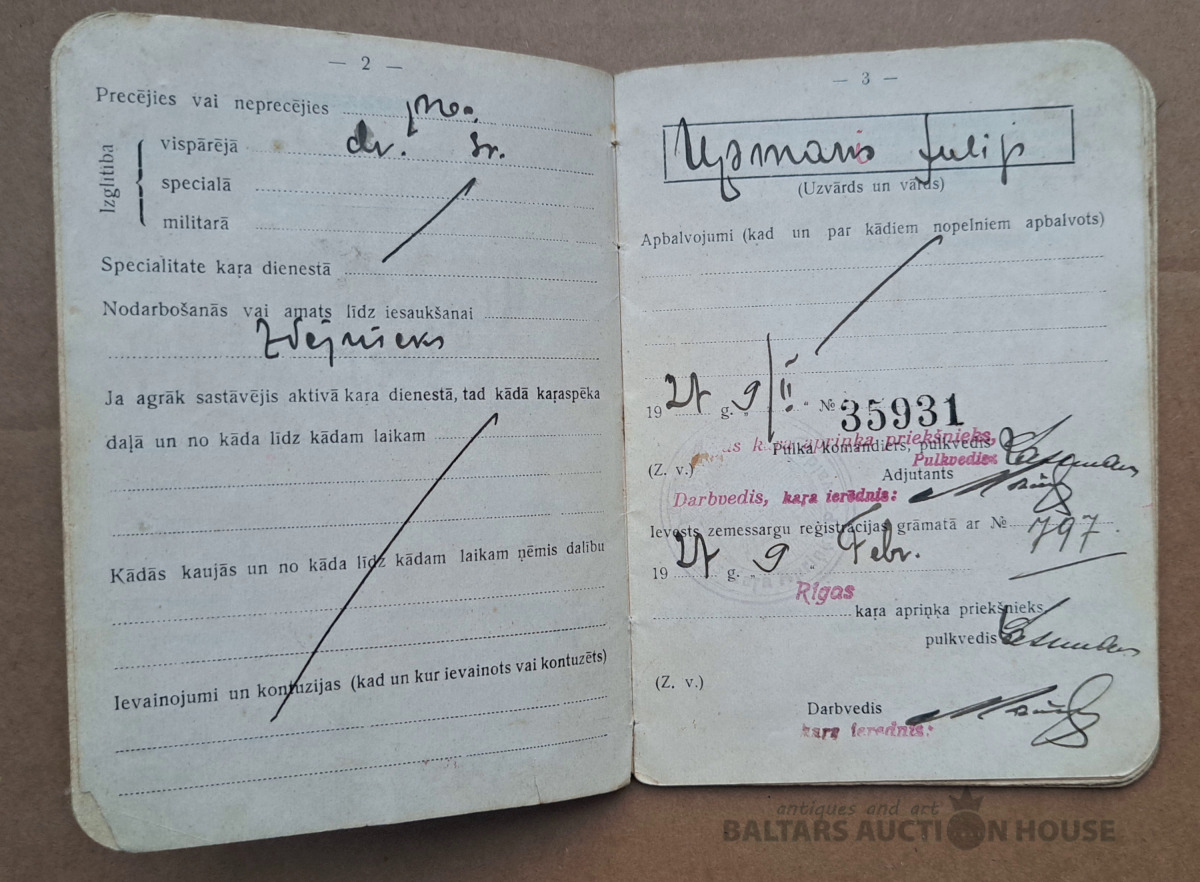 — 2 —
Precējies vai neprecējies
Izglītība
vispārējā
speciālā
militarā
Specialitate kaŗa dienestā
Nodarbošanās vai amats līdz iesaukšanai
Zvejnieks
Ja agrāk sastāvējis aktivā kaŗa dienestā, tad kādā kaŗaspēka
daļā un no kāda līdz kādam laikam
Kādās kaujās un no kāda līdz kādam laikam ņēmis dalību
Ievainojumi un kontuzijas (kad un kur ievainots vai kontuzēts)
— 3 —
(Uzvārds un vārds)
Apbalvojumi (kad un par kādiem nopelniem apbalvots)
19 27 g. 9 II № 35931
Rīgas kaŗa apriņķa priekšnieks,
Pulka komandiers, pulkvedis
Pulkvedis:
(Z. v.) Adjutants
Darbvedis, kaŗa ierēdnis:
Ievests zemessargu reģistrācijas grāmatā ar № 797.
19 27 g. „ 9 „ Febr.
Rīgas
kaŗa apriņķa priekšnieks
pulkvedis
(Z. v.)
Darbvedis
kaŗa ierēdnis:
antiques and art
BALTARS AUCTION HOUSE